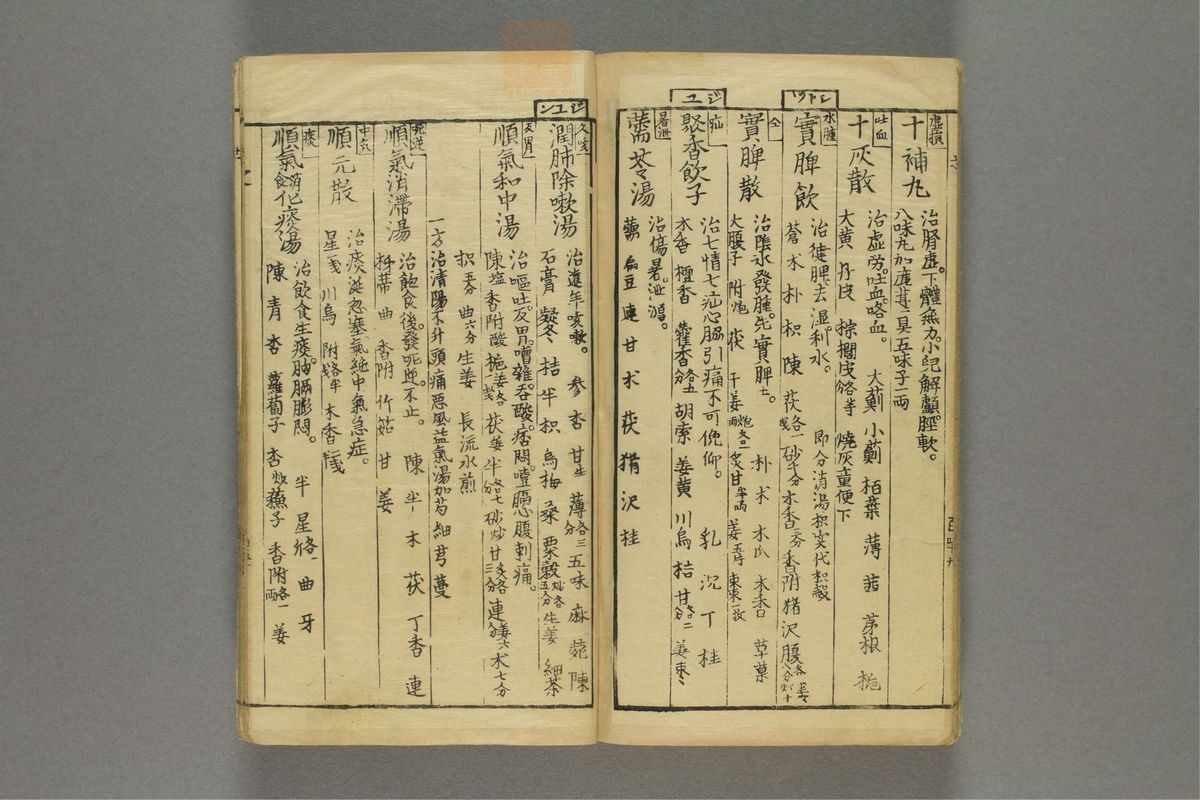 虚損
十補丸
治腎虚。下體無力。小兒解顱。脛軟。
八味丸加鹿茸一具五味子一両
吐血
十灰散
治虚労。吐血。咯血。
大薊 小薊 栢葉 薄 茜 茅根 梔
大黄 丹皮 棕櫚皮各等 燒灰童便下
シトツ
水腫
實脾飲
治健脾。去湿。利水。
即分消湯枳実代枳殻
蒼 朮 朴 枳 陳 茯
砂 木香 香附 猪 沢 腹
仝
實脾散
治陰水發腫。先實脾土。
朴 朮 木瓜 木香 草菓
大腹子 附炮 茯 干姜 炙甘半両 姜 棗
ジユ
疝
聚香飲子
治七情七疝心脇引痛不可俛仰。
乳 沉 丁 桂
木香 檀香 藿香 胡索 姜黄 川烏 桔 甘 姜棗
暑泄
薷苓湯
治傷暑。泄瀉。
薷 扁豆 連 甘 朮 茯 猪 沢 桂
ジユン
久咳
潤肺除嗽湯
治遠年咳嗽。
参 杏 甘生 薄 五味 麻 菀 陳
石膏 款冬 桔 半 枳 烏梅 桑 粟殻 生姜 細茶
反胃
順氣和中湯
治嘔吐。反胃。嘈雜。吞酸。痞悶。噎膈。心腹刺痛。
陳塩 香附酸 梔姜 茯姜 半 砂炒 甘 連 朮七分
枳五分 曲六分 生姜 長流水煎
一方治清陽不升頭痛悪風益氣湯加芍 細 芎 蔓
順氣消滞湯
治飽食後。發呃逆不止。
陳 半 木 茯 丁香 連
柿蒂 曲 香附 竹筎 甘 姜
中氣
順元散
治痰涎忽塞。氣絶中氣急症。
星 川烏 附 木香
痰
順氣消食化痰湯
治飲食生痰。胸膈膨悶。
半 星 曲 牙
陳 青 杏 蘿蔔子 杏炒 蘇子 香附 姜